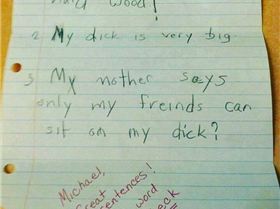 hard wood!
2 My dick is very big
3 My mother says
only my freinds can
sit on my dick?
Michael,
Great
sentences!
word